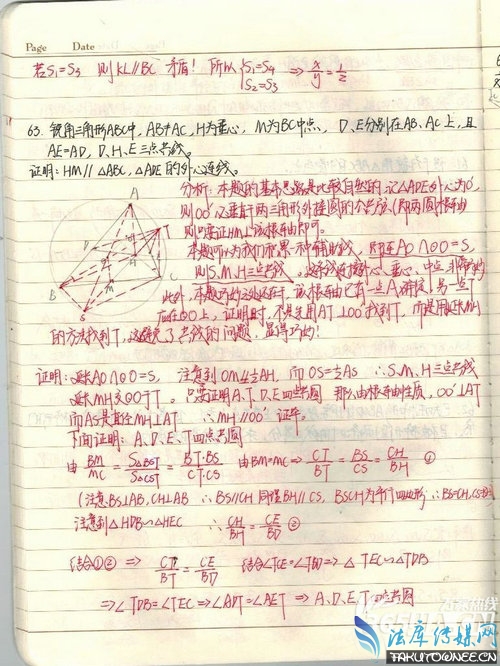 Page Date
若S₁=S₃ 则KL//BC 矛盾! 所以 { S₁=S₄ S₂=S₃ ⇒ x/y = 1/2
63. 锐角三角形ABC中, AB≠AC, H为垂心, M为BC中点, D、E分别在AB、AC上, 且
AE=AD, D、H、E三点共线。
证明: HM// △ABC, △ADE的外心连线。
分析: 本题的基本思路是比较自然的, 记△ADE外心为O',
则OO'必垂直于两三角形外接圆的公共弦(即两圆根轴
则只要证HM⊥该根轴即可。
本题可以为我们积累一种辅助线, 即延长AO∩⊙O=S,
则S、M、H三点共线
此外, 本题巧妙之处还在于, 该根轴已有一点A满足, 另一点
应在⊙O上, 证明时, 不是先用AT⊥OO'找到T, 而是用延长MH
的方法找到T, 这避免了共线的问题, 显得巧妙!
证明: 延长AO∩⊙O=S, 注意到OM⫽½AH, 而OS=½AS ∴S、M、H三点共线
延长MH交⊙O于T。只需证明A、T、D、E四点共圆 那么由根轴性质, OO'⊥AT
而AS是直径MH⊥AT ∴MH//OO' 证毕。
下面证明: A、D、E、T四点共圆
由 BM/MC = S△BST/S△CST = BT·BS/CT·CS 由BM=MC ⇒ CT/BT = BS/CS = CH/BH ①
(注意BS⊥AB, CH⊥AB ∴BS//CH 同理BH//CS, BSCH为平行四边形 ∴BS=CH, CS=BH)
注意到△HDB∽△HEC ∴ CH/BH = CE/BD ②
结合①② ⇒ CT/BT = CE/BD 结合∠TCE=∠TBD ⇒ △TEC∽△TDB
⇒∠TDB=∠TEC ⇒∠ADT=∠AET ⇒ A、D、E、T四点共圆
A
T
B
C
S
法库传媒网
TAKUTOWNEE.CN